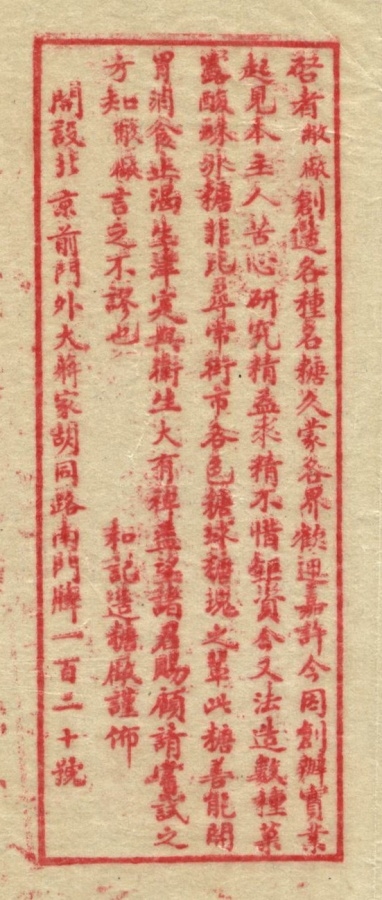 啓者敝廠創造各種名糖久蒙各界歡迎嘉許今因創辦實業
起見本主人苦心研究精益求精不惜鉅資今又法造數種菓
露酸味水糖非比尋常街市各色糖球糖塊之輩此糖善能開
胃消食止渴生津实與衛生大有裨益望諸君賜顧請嘗試之
方知敝廠言之不謬也 和記造糖廠謹佈
開設北京前門外大蔣家胡同路南門牌一百二十號